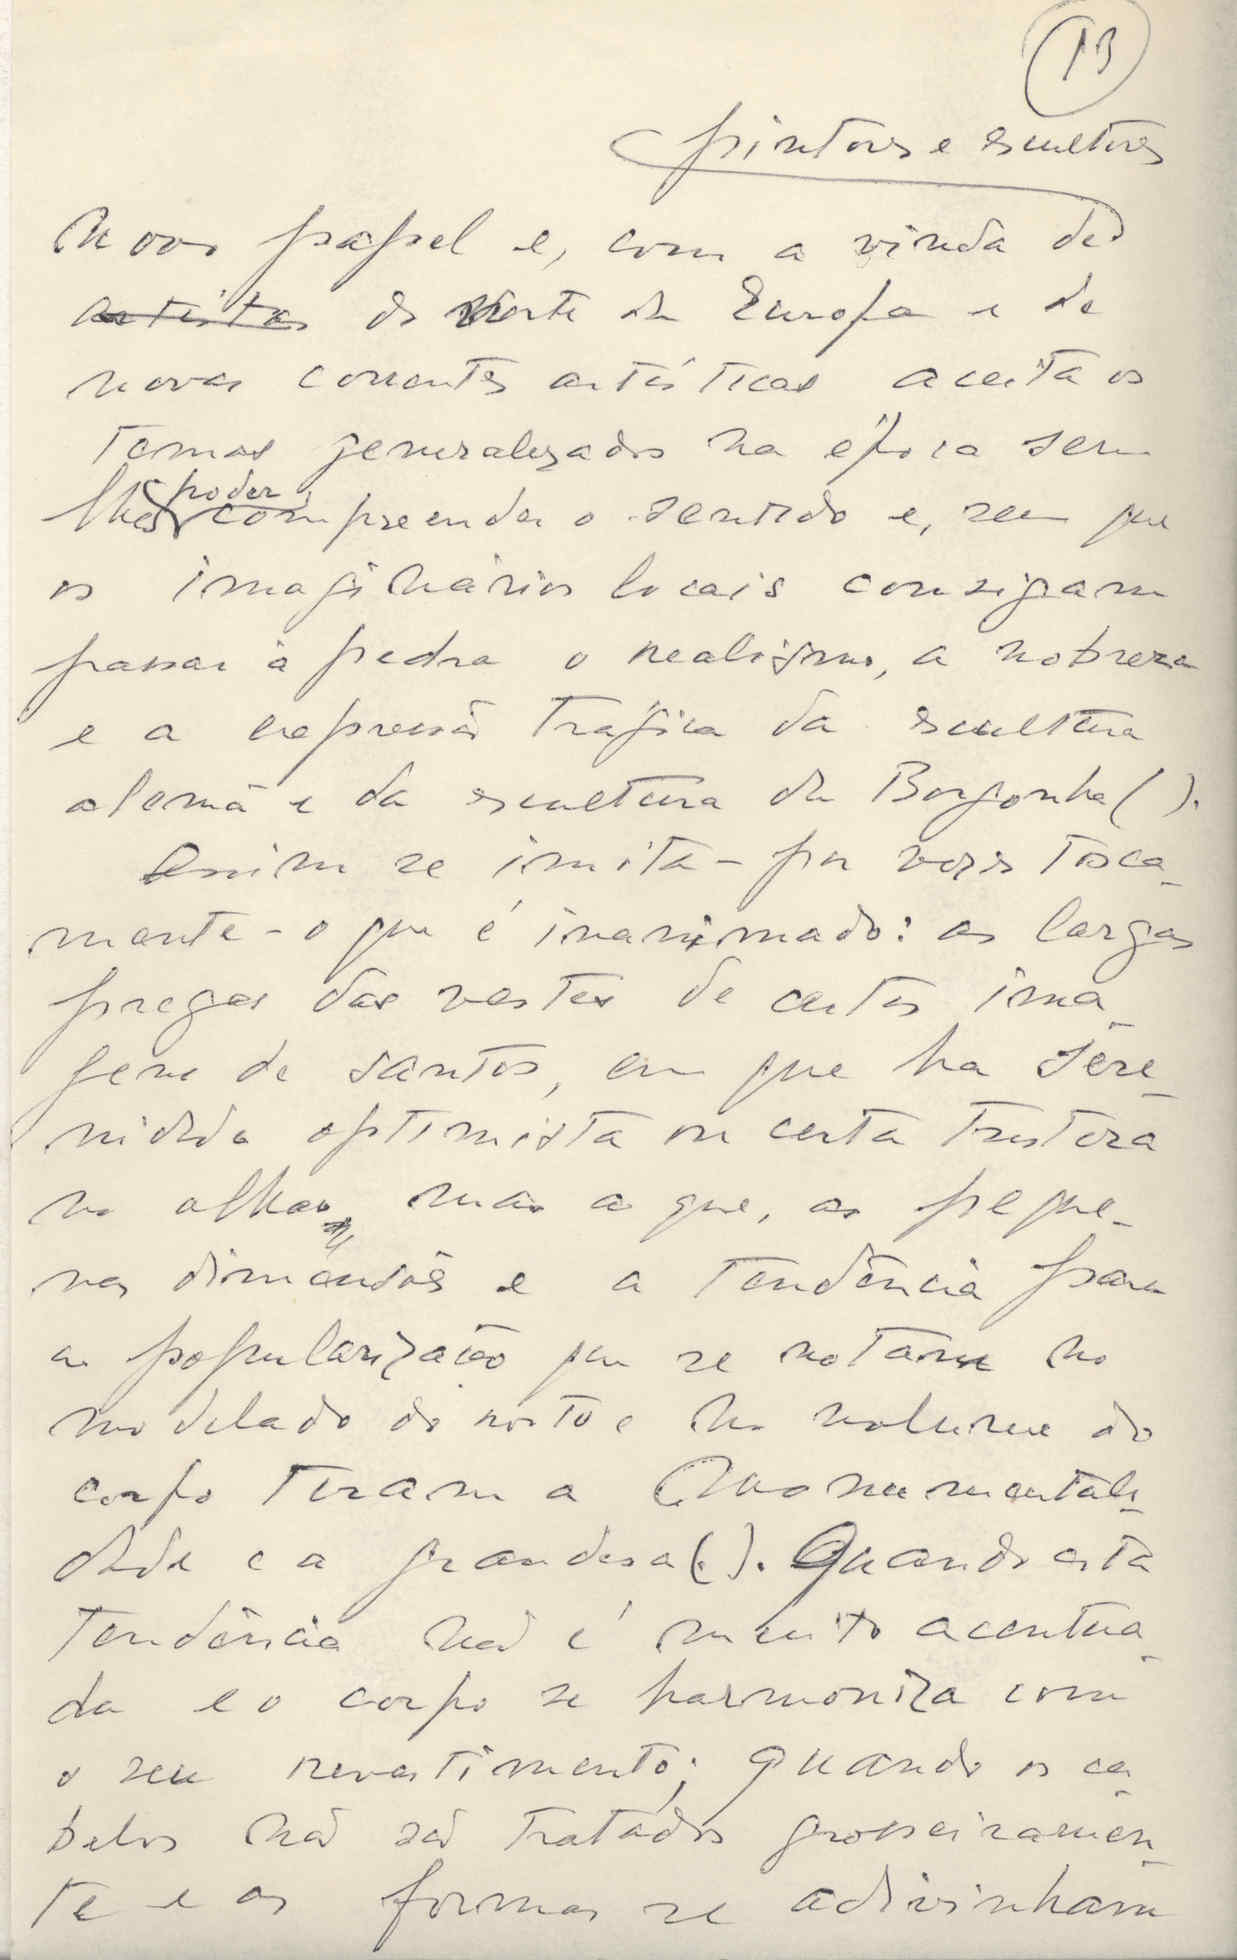 13
pintores e escultores
novo papel e, com a vinda de
artistas do Norte da Europa e de
novas correntes artísticas aceita os
temas generalizados na época sem
poder
lhes compreender o sentido e, sem que
os imaginários locais consigam
passar à pedra o realismo, a nobreza
e a expressão trágica da escultura
alemã e da escultura da Borgonha ( ).
Assim se imita - por vezes tosca-
mente - o que é inanimado: as largas
pregas das vestes de certas ima-
gens de santos, em que há sere-
nidade optimista ou certa tristeza
no olhar, mas a que, as peque-
nas dimensões e a tendência para
a popularização que se notam no
modelado do rosto e no volume do
corpo tiram a monumentali-
dade e a grandesa (.). Quando esta
tendência não é muito acentua-
da e o corpo se harmoniza com
o seu revestimento; quando os ca-
belos não são tratados grosseiramen-
te e as formas se adivinham